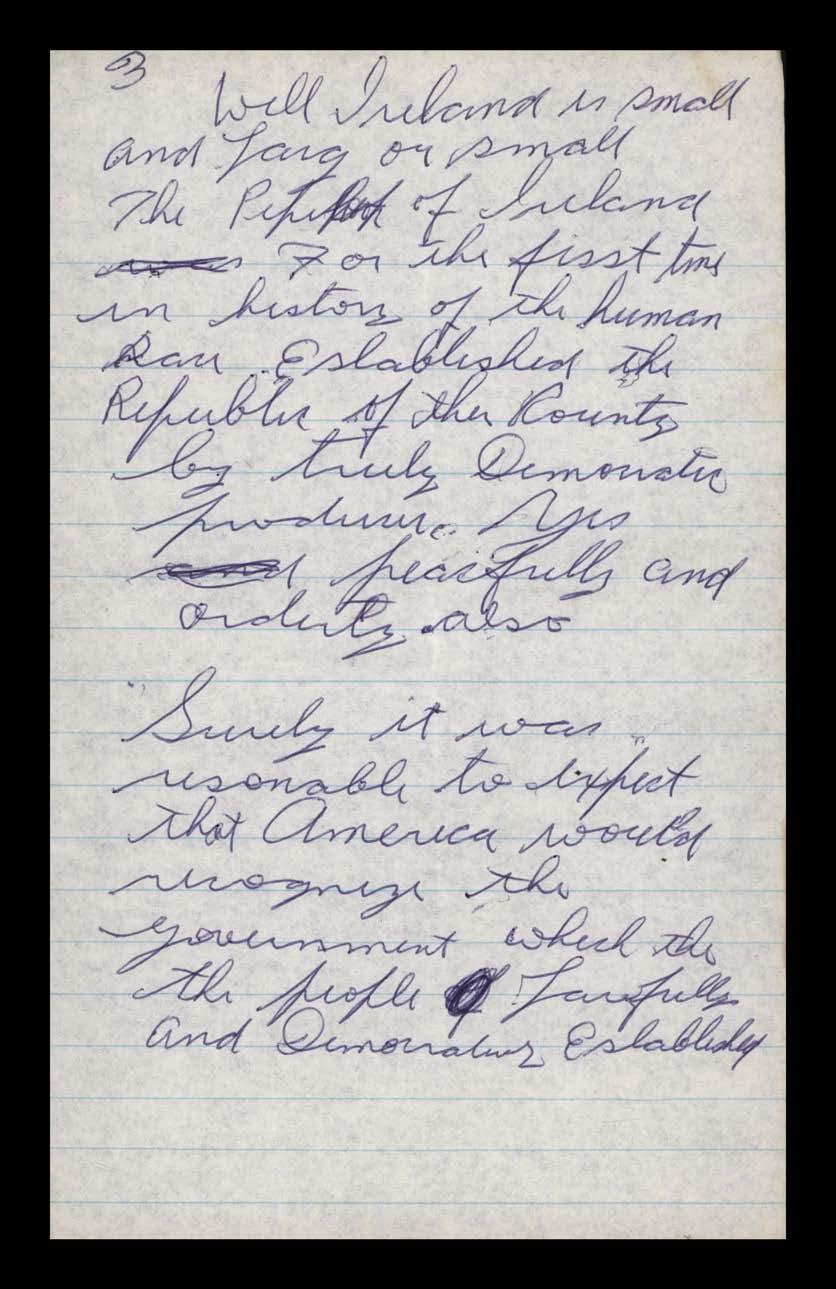 3
Well Ireland is small
and Larg or small
The of Ireland
For the fisst time
in history of the human
Race Eslablished the
Republic of ther County
by truly Democratic
producure. Yes
and peacefully and
orderly also
Surely it was
resonable to expect
that America would
recognize the
government which the
the people Lawfully
and Eslablished